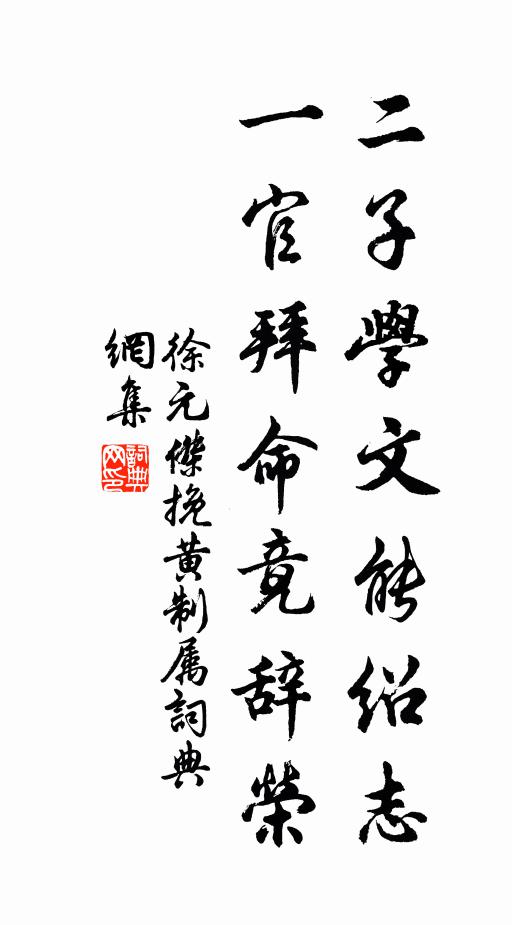 二子學文能紹志
一官拜命竟辞榮
徐元傑挽黄制属詞典
網集
詞典
网印